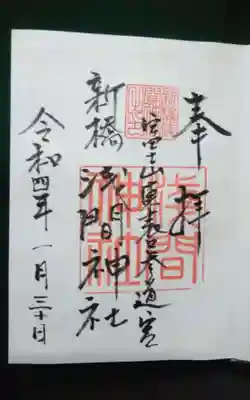 奉拝
富士山東表口参道宮
新橋浅間神社
令和四年一月三十日
浅間神社